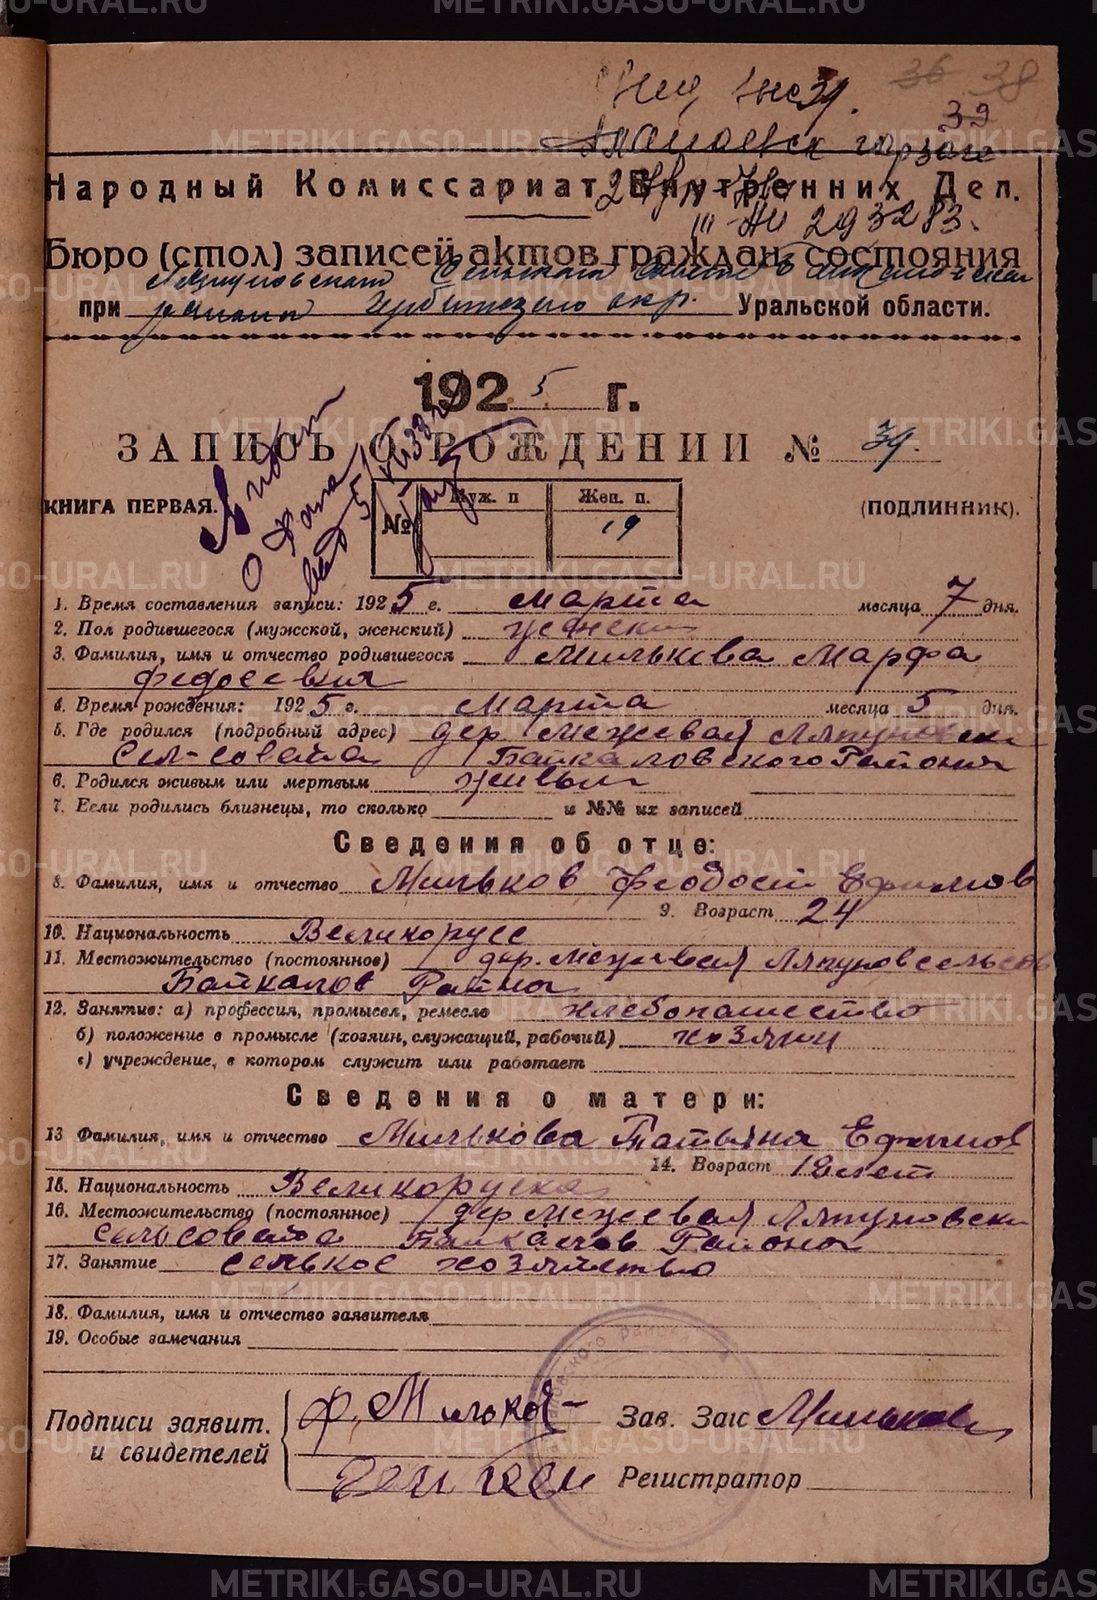 36 38
39
Народный Комиссариат Внутренних Дел.
III АИ 293283.
Бюро (стол) записей актов граждан. состояния
при Ирбитского окр. Уральской области.
1925 г.
ЗАПИСЬ О РОЖДЕНИИ № 39.
КНИГА ПЕРВАЯ. (ПОДЛИННИК).
№ Муж. п Жен. п.
19
1. Время составления записи: 1925 г. Марта месяца 7 дня.
2. Пол родившегося (мужской, женский) женский
3. Фамилия, имя и отчество родившегося Милькова Марфа
Федосевия
4. Время рождения: 1925 г. Марта месяца 5 дня.
5. Где родился (подробный адрес) дер. Межевая Ляпуновски
Сел-совета Байкаловского Района
6. Родился живым или мертвым живым
7. Если родились близнецы, то сколько и №№ их записей
Сведения об отце:
8. Фамилия, имя и отчество Мильков Феодосий Ефимов
9. Возраст 24
10. Национальность Великорусс
11. Местожительство (постоянное) дер. Межевая Ляпуновсельсов
Байкалов Района
12. Занятие: а) профессия, промысел, ремесло хлебопашество
б) положение в промысле (хозяин, служащий, рабочий) хозяин
в) учреждение, в котором служит или работает
Сведения о матери:
13 Фамилия, имя и отчество Милькова Татьяна Ефимов
14. Возраст лет
15. Национальность Великоруска
16. Местожительство (постоянное) дер Межевая Ляпуновски
сельсовета Байкалов Района
17. Занятие селькое хозяйство
18. Фамилия, имя и отчество заявителя
19. Особые замечания
Подписи заявит. и свидетелей
Ф. Мильков Зав. Загс Мильков
Регистратор
METRIKI.GASO-URAL.RU